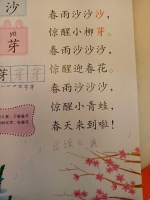 沙
yá
芽
芽芽芽
春雨沙沙沙，
惊醒小柳芽。
春雨沙沙沙，
惊醒迎春花。
春雨沙沙沙，
惊醒小青蛙，
春天来到啦！